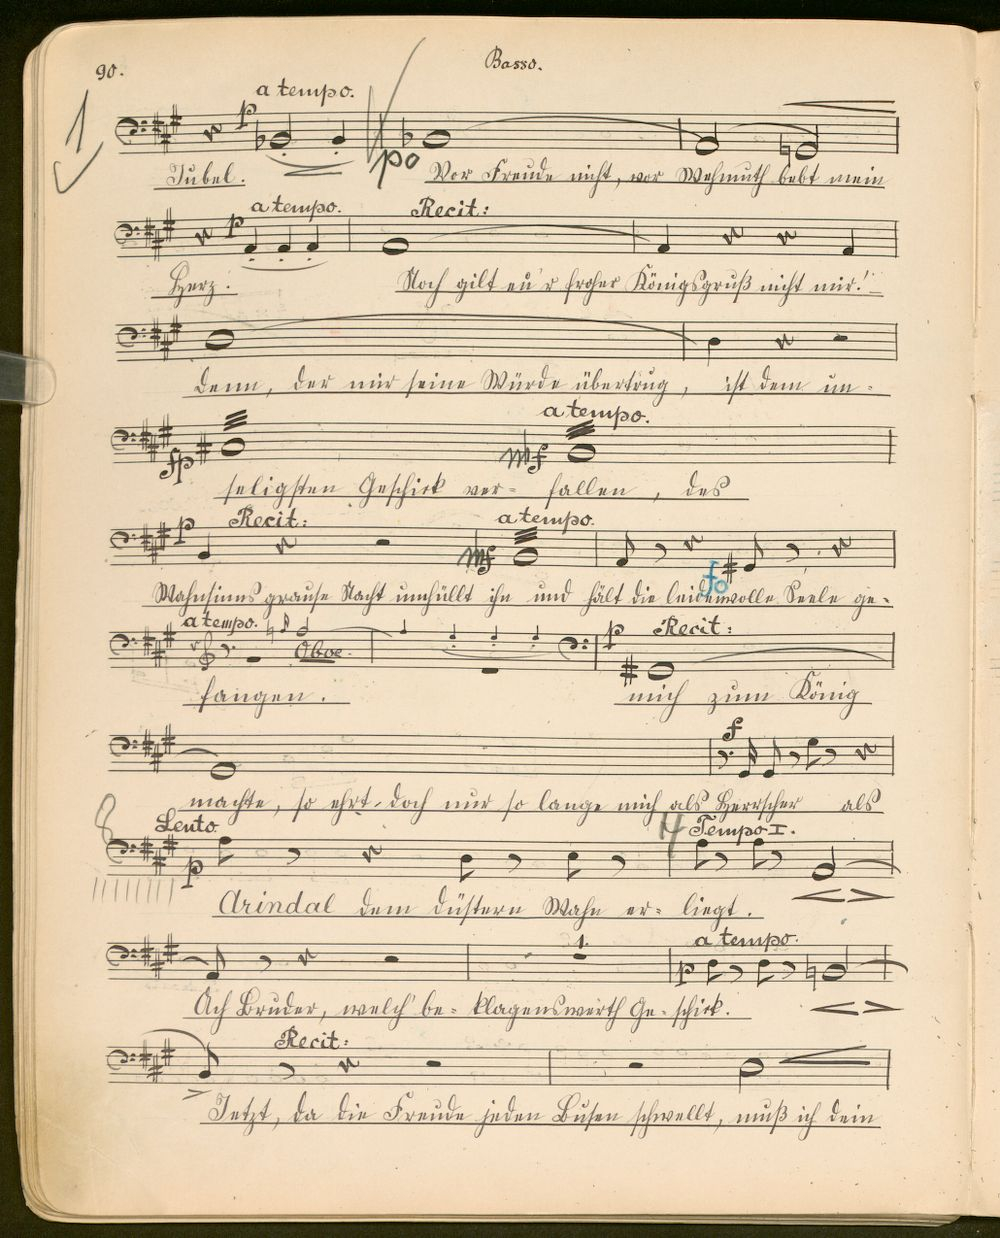 90.
Basso.
1
a tempo.
p
po
Jubel.
Vor Freude nicht, vor Wehmuth bebt mein
a tempo.
Recit:
p
Herz.
Noch gilt eu'r froher Königsgruß nicht mir!
denn, der mir seine Würde übertrug, ist dem un-
a tempo.
fp
mf
seligsten Geschick ver- fallen, des
p
Recit:
a tempo.
mf
fo
Wahnsinns grause Nacht umhüllt ihn und hält die leidenvolle Seele ge-
a tempo.
Oboe.
p
Recit:
fangen.
mich zum König
f
machte, so ehrt doch nur so lange mich als Herrscher als
8
Lento.
4
Tempo I.
p
Arindal dem düstern Wahn er- liegt.
1.
a tempo.
p
Ach Bruder, welch' be- klagenswerth Ge- schick.
Recit:
Jetzt, da die Freude jeden Busen schwellt, muß ich dein